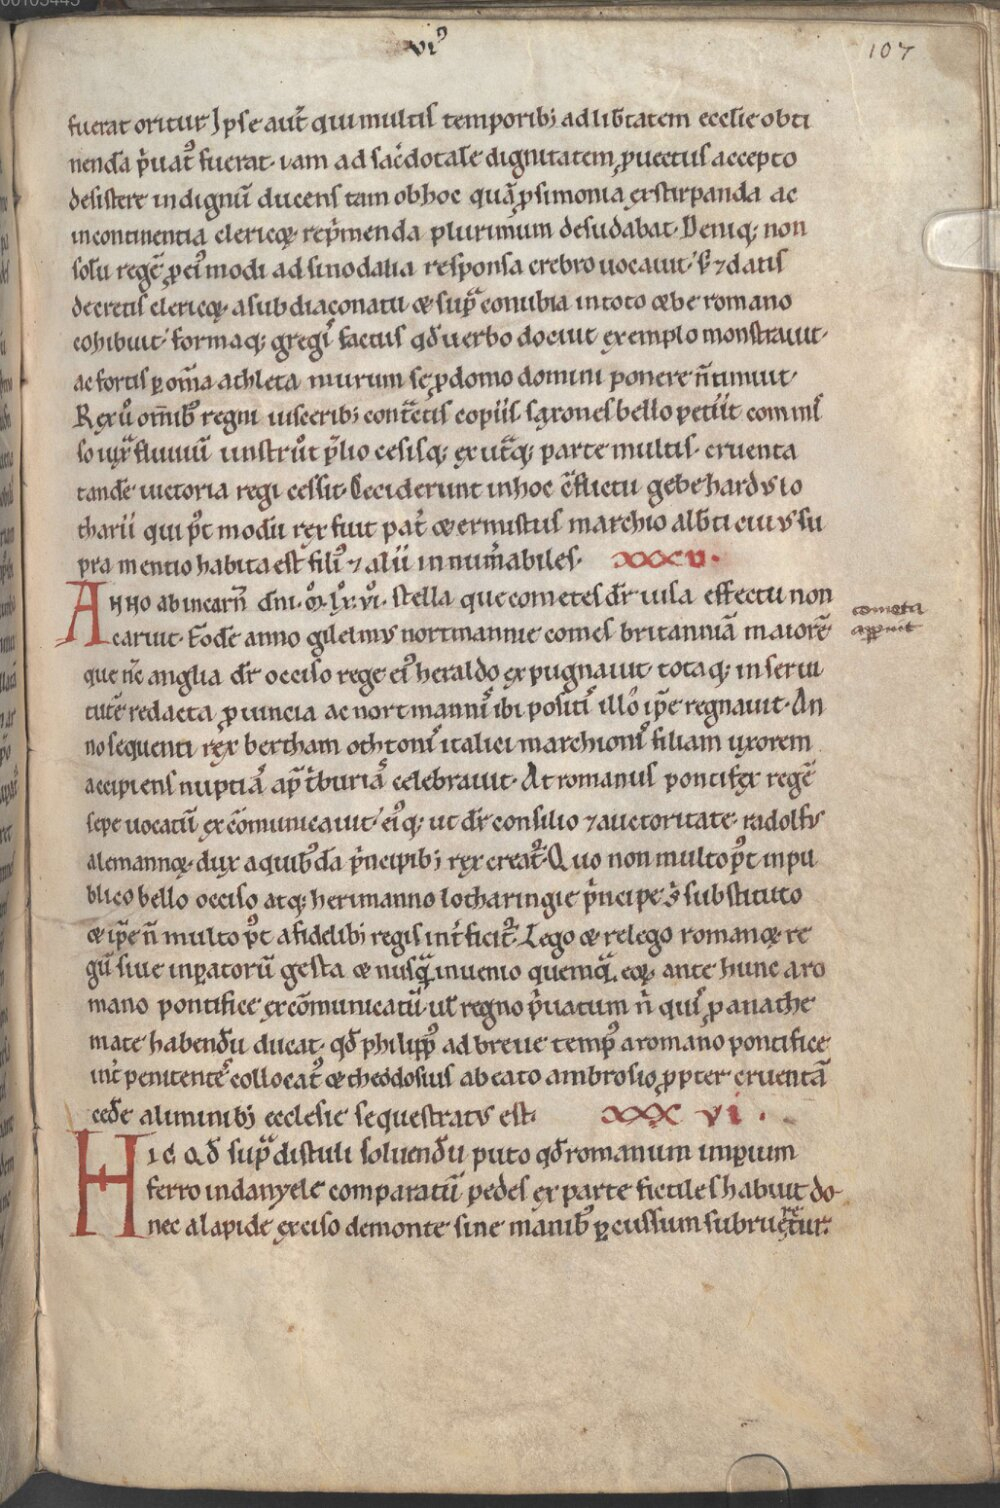 VIꝰ
107
fuerat oritur Ipse aut̄ qui multis temporibꝫ ad lib̄tatem ecclīe obti
nenda p̓uatꝰ fuerat· iam ad sac̓dotalē dignitatem ꝓuectus accepto
desistere indignū ducens tam ob hoc quā ꝓ simonia exstirpanda ac
incontinentia clericoꝝ rep̓menda plurimum desudabat· Deniqꝫ non
solū regē ꝓ eiꝰmodi ad sinodalia responsa crebro uocauit· sꝫ ⁊ datis
decretis clericoꝝ· a subdiaconatu & sup̃ conubia in toto orbe romano
cohibuit· formaqꝫ gregis factus qd̄ uerbo docuit exemplo monstrauit·
ac fortis ꝑ om̄a athleta murum se ꝓ domo domini ponere n̄ timuit·
Rex ū om̄ibꝰ regni uisceribꝫ cont̃ctis copiis saxones bello petiit commis
so iuxᷓ fluuiū unstrut p̄lio cesisqꝫ ex ut̃qꝫ parte multis· cruenta
tandē uictoria regi cessit· Ceciderunt in hoc c̄flictu gebehardus lo
tharii qui p̓t modū rex fuit pat̓ & ernustus marchio alb̄ti cuius su
pra mentio habita est filiꝰ ⁊ alii innum̓abiles· XXXV·
Anno ab incarn̄ dn̄i· M̊· Lx̊· vi̊· stella que cometes dr̄ uisa effectu non
caruit· Eodē anno gilelmus nortmannie comes britanniā maiorē
que nc̄ anglia dr̄ occiso rege eiꝰ heraldo expugnauit· totaqꝫ in serui
tutē redacta ꝓuincia ac nortmannis ibi positis illo ip̄e regnauit· An
no sequenti rex bertham othtonis italici marchionis filiam uxorem
accipiens nuptias ap̄ t̓burias celebrauit· At romanus pontifex regē
sepe uocatū excōmunicauit· eiꝰqꝫ ut dr̄ consilio ⁊ auctoritate· radolfus
alemannoꝝ· dux a quibꝰdā p̓ncipibꝫ rex creat̓· Quo non multo pꝰt in pu
blico bello occiso atqꝫ herimanno lotharingie p̓ncipe s̓ substituto
& ip̄e n̄ multo pꝰt a fidelibꝫ regis int̓ficit̓· Lego & relego romanoꝝ re
gū siue inꝑatorū gesta & nusq̃ inuenio quemq̃ eoꝝ ante hunc a ro
mano pontifice excōmunicatū· ul̓ regno p̓uatum n̄ quis ꝓ anathe
mate habendū ducat· qd̄ philippꝰ ad breue tempꝰ a romano pontifice
int̓ penitentes collocatꝰ & theodosius ab cato ambrosio ꝓpter cruentā
cedē a liminibꝫ ecclesie sequestratus est· XXXVI·
Hic qd̄ sup̃ distuli soluendū puto qd̄ romanum imꝑium
ferro in danyele comparatū pedes ex parte fictiles habuit do-
nec a lapide exciso de monte sine manibꝰ ꝑcussum subrueretur·
cometa
apparuit